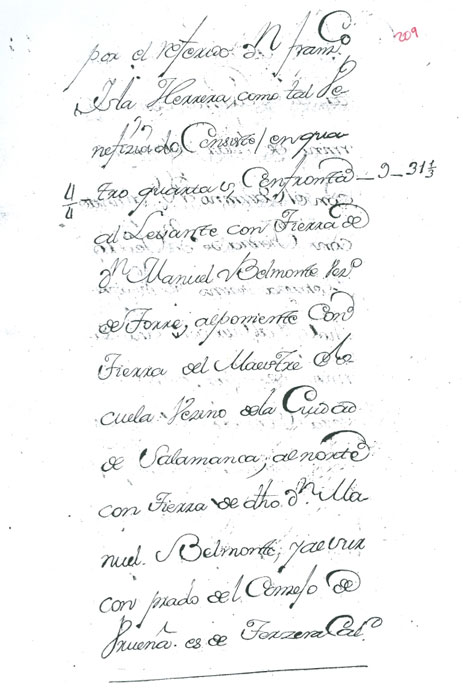 209
por el referido Dn. Franco.
Isla Herrera, como tal Be-
nefiziado, Consiste / en qua-
4/4 tro quartas, Confronta - 9 - 31 1/3
al Levante con Tierra de
Dn. Manuel Belmonte Vezo.
de Torre, al poniente Con
Tierra del Maestre
cuela Vezino de la Ciudad
de Salamanca, al norte
con Tierra de dho. Dn. Ma-
nuel Belmonte, y al sur
con prado del Consejo de
es de Terzera Cald.